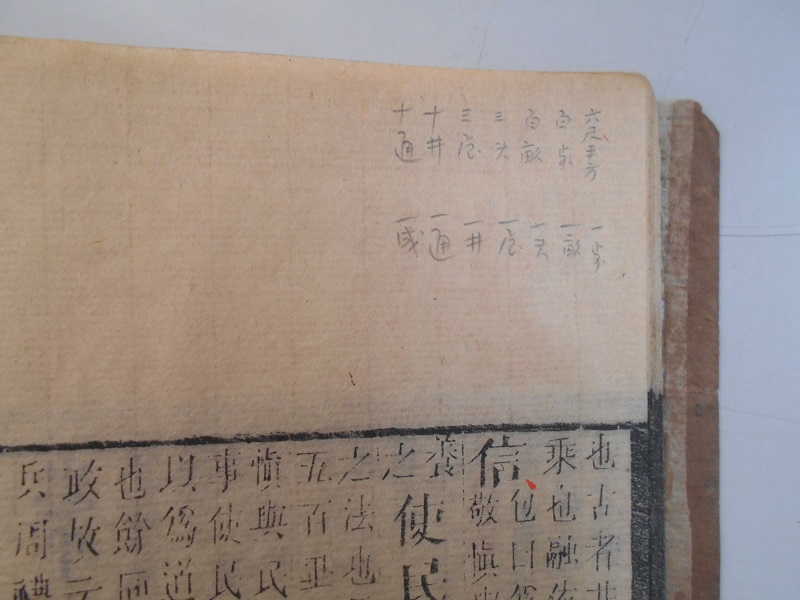 六尺平方 一歩
百歩 一畝
百畝 一夫
三夫 一屋
三屋 一井
十井 一通
十通 一成
也古者井
乘也融依
信包曰爲
敬愼
養
之使民
之法也
五百
愼與民
事使民
以爲道
也餘同
政故云
兵周禮